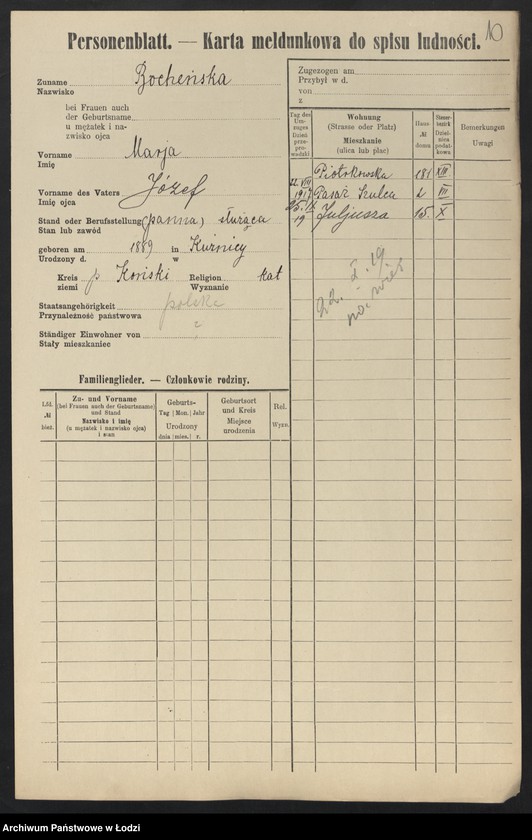 10
Personenblatt. — Karta meldunkowa do spisu ludności.
Zuname
Nazwisko Bocheńska
bei Frauen auch
der Geburtsname
u mężatek i na-
zwisko ojca
Vorname Marja
Imię
Vorname des Vaters Józef
Imię ojca
Stand oder Berufsstellung (panna) służąca
Stan lub zawód
geboren am 1889 in Kuźnicy
Urodzony d. w
Kreis p Koński Religion kat
ziemi Wyznanie
Staatsangehörigkeit polska
Przynależność państwowa
Ständiger Einwohner von ?
Stały mieszkaniec
Familienglieder. — Członkowie rodziny.
Lfd. № bież.
Zu- und Vorname
(bei Frauen auch der Geburtsname)
und Stand
Nazwisko i imię
(u mężatek i nazwisko ojca)
i stan
Geburts-
Tag Mon. Jahr
Urodzony
dnia mies. r.
Geburtsort
und Kreis
Miejsce
urodzenia
Rel.
Wyzn.
Zugezogen am
Przybył w d.
von
z
Tag des
Um-
zuges
Dzień
prze-
prowadzki
Wohnung
(Strasse oder Platz)
Mieszkanie
(ulica lub plac)
Haus-
№
domu
Steuer-
bezirk
Dziel-
nica
podat-
kowa
Bemerkungen
Uwagi
Piotrkowska 181 XIII
22 VII 1917 Pasaż Szulca 2 VIII
19 Juljusza 15 X
22. X. 19
na wieś
Archiwum Państwowe w Łodzi